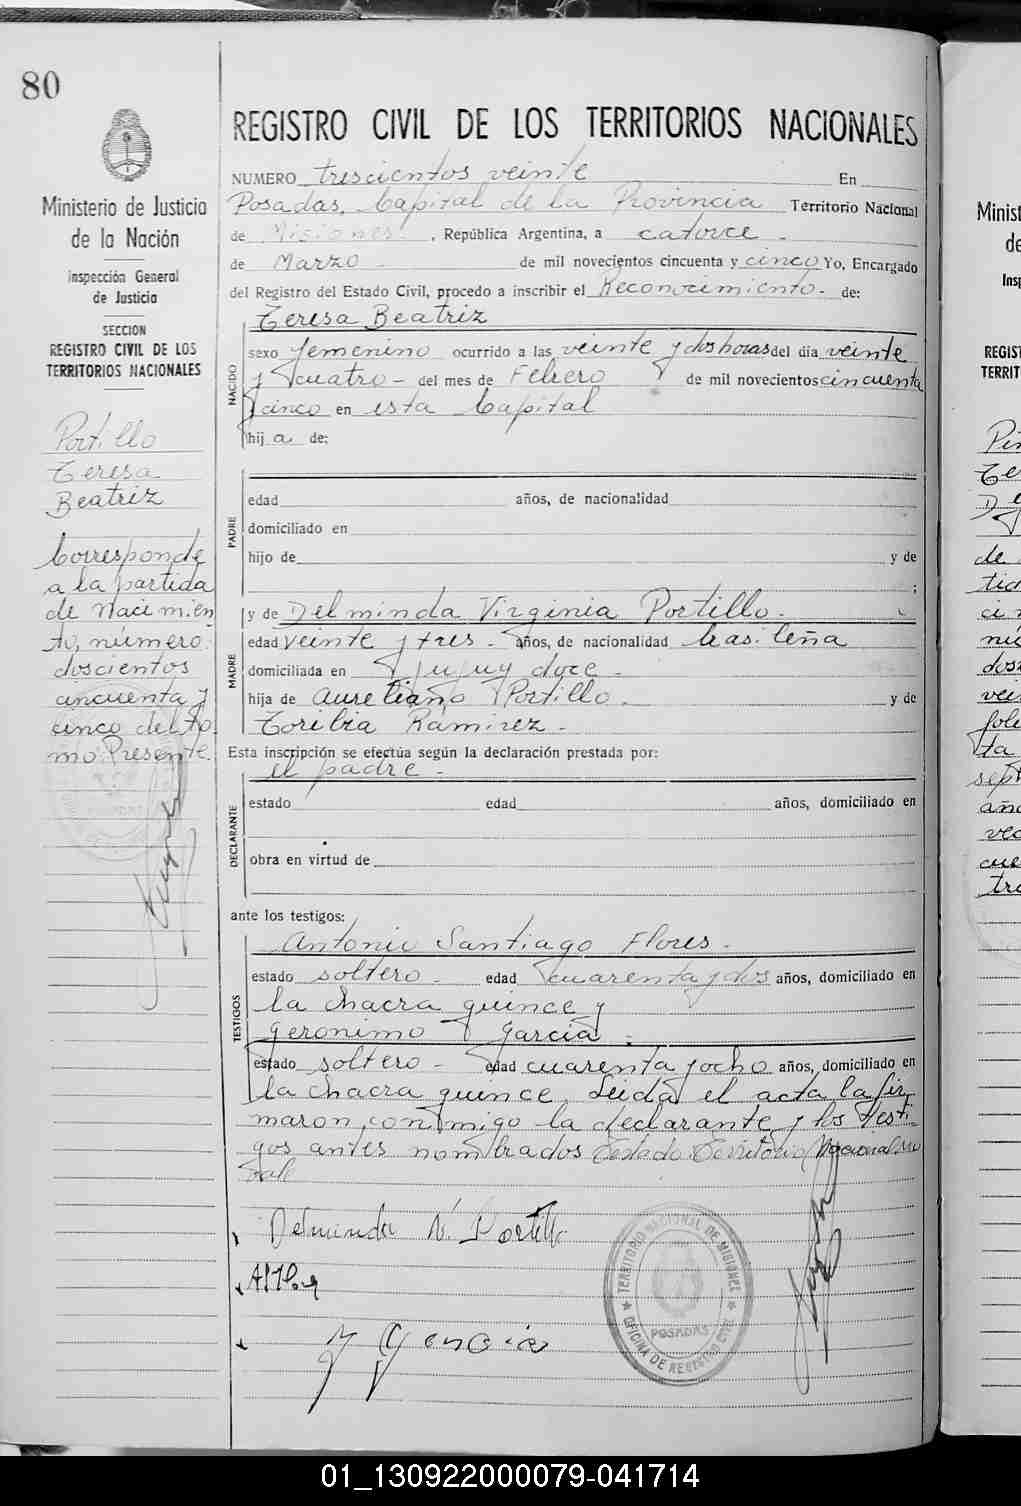 80
Ministerio de Justicia
de la Nación
Inspección General
de Justicia
SECCION
REGISTRO CIVIL DE LOS
TERRITORIOS NACIONALES
Portillo
Teresa
Beatriz
Corresponde
a la partida
de nacimien
to, número
doscientos
cincuenta y
cinco del to
mo Presente.
REGISTRO CIVIL DE LOS TERRITORIOS NACIONALES
NUMERO trescientos veinte En
Posadas, Capital de la Provincia Territorio Nacional
de Misiones. , República Argentina, a catorce -
de Marzo - de mil novecientos cincuenta y cinco Yo, Encargado
del Registro del Estado Civil, procedo a inscribir el Reconocimiento - de:
Teresa Beatriz
NACIDO
sexo femenino ocurrido a las veinte y dos horas del día veinte
y cuatro - del mes de Febrero de mil novecientos cincuenta
y cinco en esta Capital
hija de:
PADRE
edad años, de nacionalidad
domiciliado en
hijo de y de
;
MADRE
y de Delminda Virginia Portillo -
edad veinte y tres - años, de nacionalidad brasileña
domiciliada en Jujuy doce -
hija de Aureliano Portillo. y de
Toribia Ramirez -
Esta inscripción se efectúa según la declaración prestada por:
el padre -
DECLARANTE
estado edad años, domiciliado en
obra en virtud de
ante los testigos:
TESTIGOS
Antonio Santiago Flores -
estado soltero - edad cuarenta y dos años, domiciliado en
la chacra quince y
Geronimo Garcia -
estado soltero - edad cuarenta y ocho años, domiciliado en
la chacra quince. Leida el acta la fir
maron conmigo la declarante y los testi-
gos antes nombrados Testado Territorio Nacional no
vale
Delminda V. Portillo
TERRITORIO NACIONAL DE MISIONES
POSADAS
OFICINA DE REGISTRO CIVIL
J Garcia
Minist
de
Insp
REGIST
TERRIT
de
01_130922000079-041714